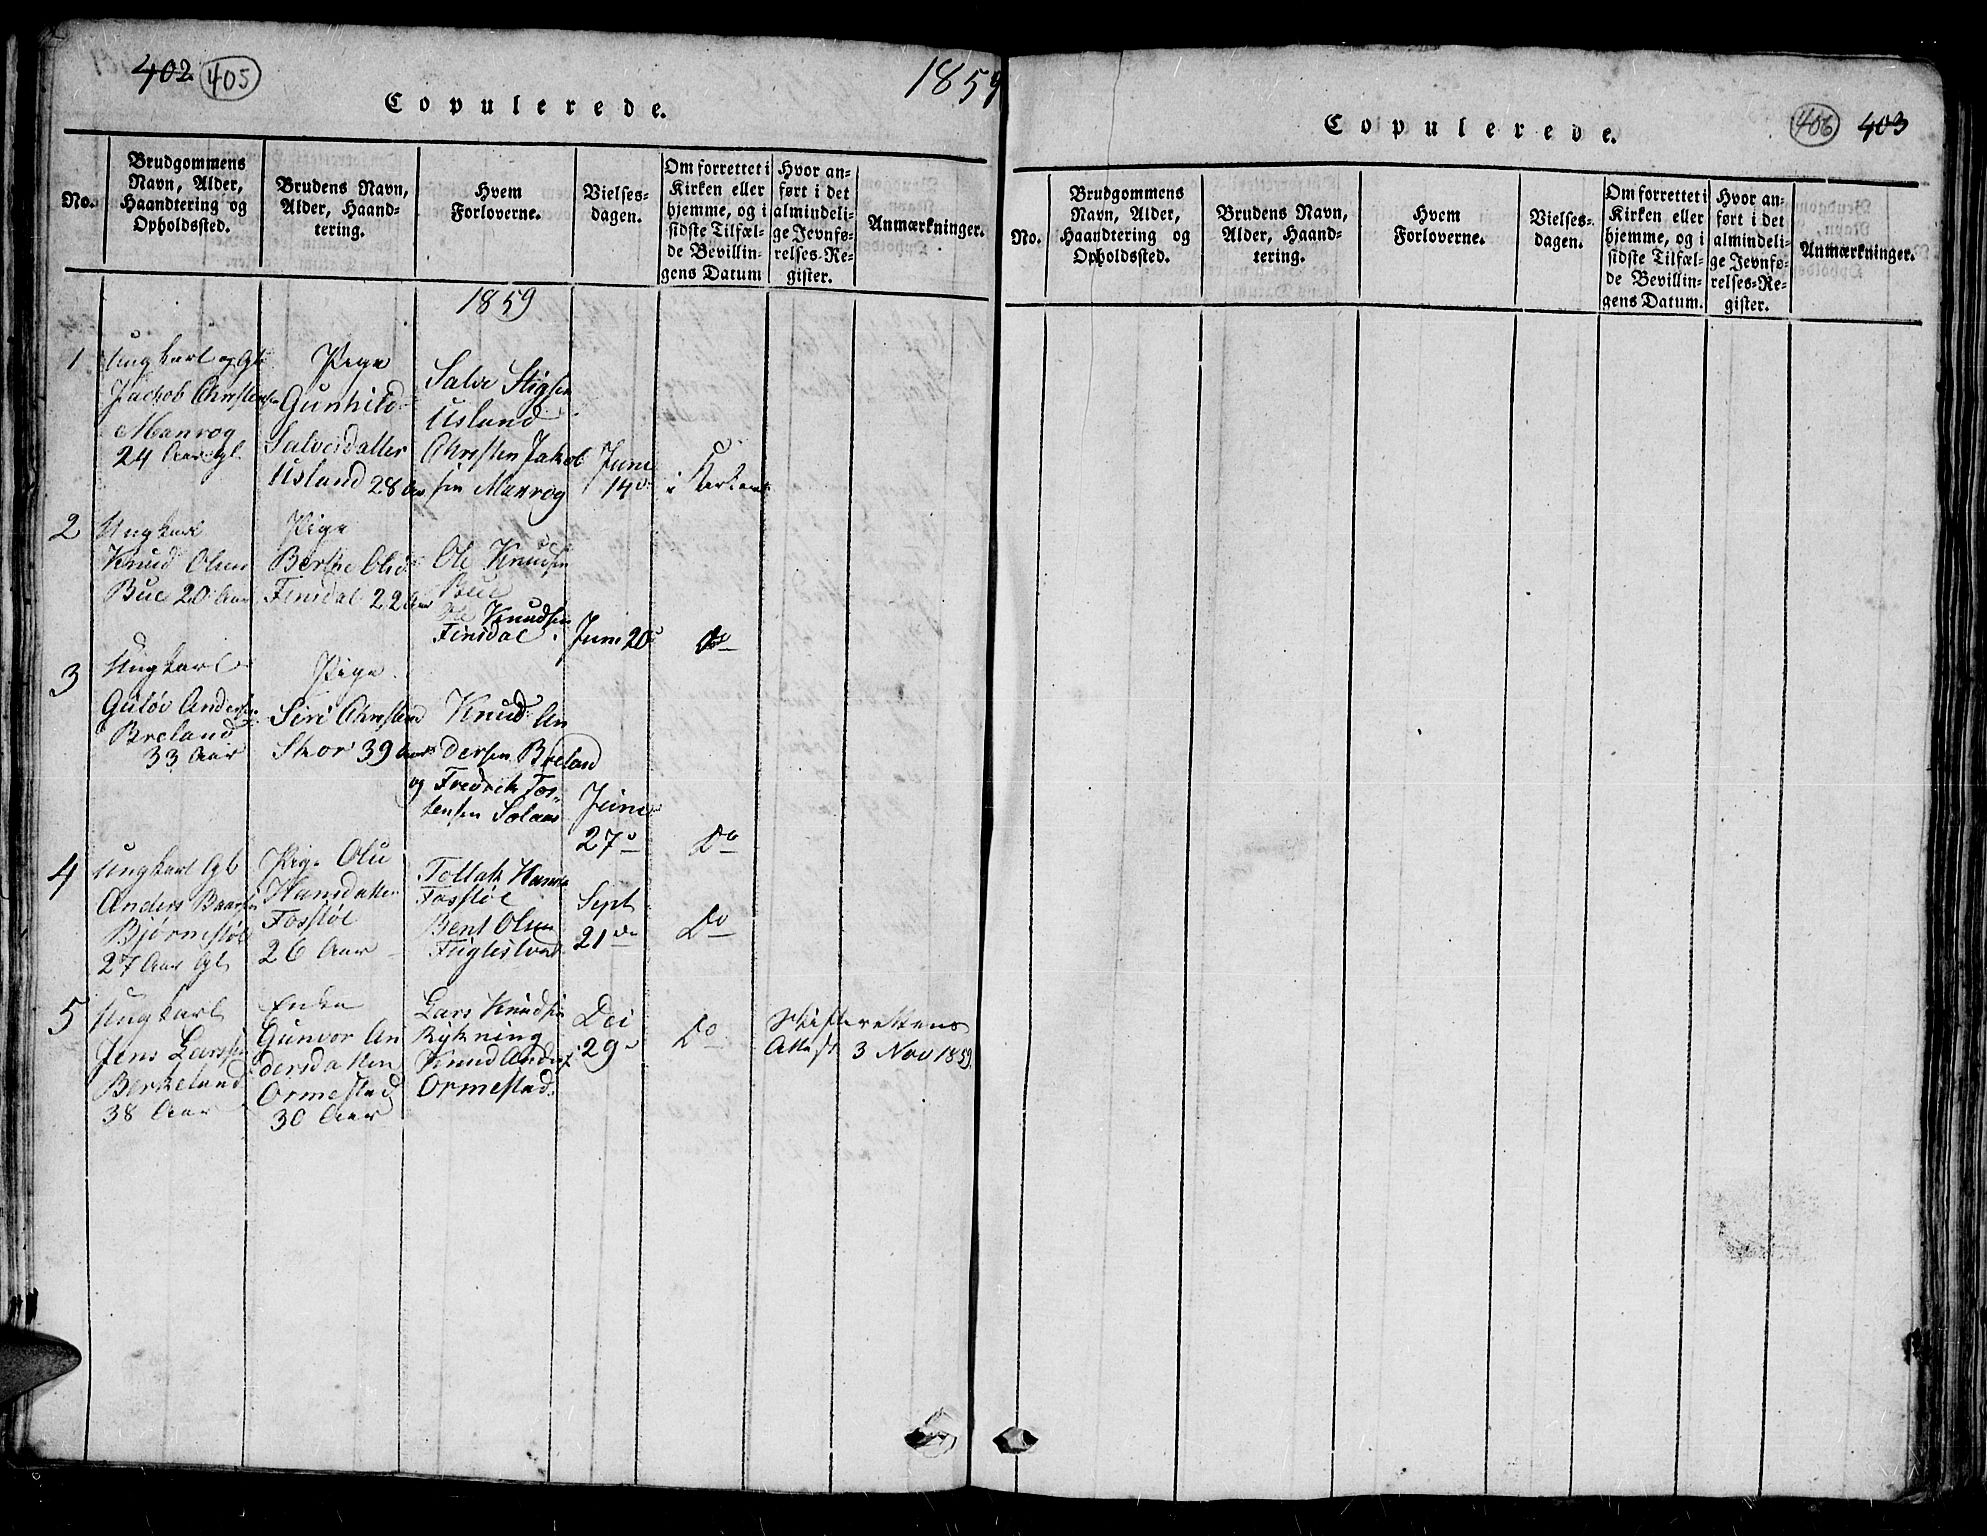 402 405
1859
Copulerede.
No.
Brudgommens
Navn, Alder,
Haandtering og
Opholdssted.
Brudens Navn,
Alder, Haand-
tering.
Hvem
Forloverne.
Vielses-
dagen.
Om forrettet i
Kirken eller
hjemme, og i
sidste Tilfæl-
de Bevillin-
gens Datum
Hvor an-
ført i det
almindeli-
ge Jevnfø-
relses-Re-
gister.
Anmærkninger.
1859
1
Ungkarl og Gb
Jackob Christensen
Manrog
24 Aar gl.
Pige
Gunhild
Salvesdatter
Usland 28 Aar
Salve Stigsen
Usland
Christen Jakob
sen Manrog
Juni
14
i Kirken
2
Ungkarl
Knud Olsen
Bue 20 Aar
Pige
Berthe Olsd
Finsdal 22 Aar
Ole Knudsen
Bue
Ole Knudsen
Finsdal
Juni 20
do
3
Ungkarl
Gutov Andersen
Breland
33 Aar
Pige
Siri Christend
Skor 39 Aar
Knud An
dersen Breland
og Fredrik Tos-
tensen Solaas
Juni
27
Do
4
Ungkarl Gb
Anders Baarsen
Bjørnestøl
27 Aar gl
Pige Olu
Hansdatter
Fosstøl
26 Aar
Tollak Hans
Fosstøl
Bent Olsen
Fuglestved
Sept
21de
Do
5
Ungkarl
Jens Larssen
Berkeland
38 Aar
Enke
Gunvor An
dersdatter
Ormestad
30 Aar
Lars Knudsen
Rykning
Knud Anders
Ormestad
Dei
29
Do
Skifterettens
Attest 3 Nov 1859
Copulerede.
406 403
No.
Brudgommens
Navn, Alder,
Haandtering og
Opholdssted.
Brudens Navn,
Alder, Haand-
tering.
Hvem
Forloverne.
Vielses-
dagen.
Om forrettet i
Kirken eller
hjemme, og i
sidste Tilfæl-
de Bevillin-
gens Datum.
Hvor an-
ført i det
almindeli-
ge Jevnfø-
relses-Re-
gister.
Anmærkninger.